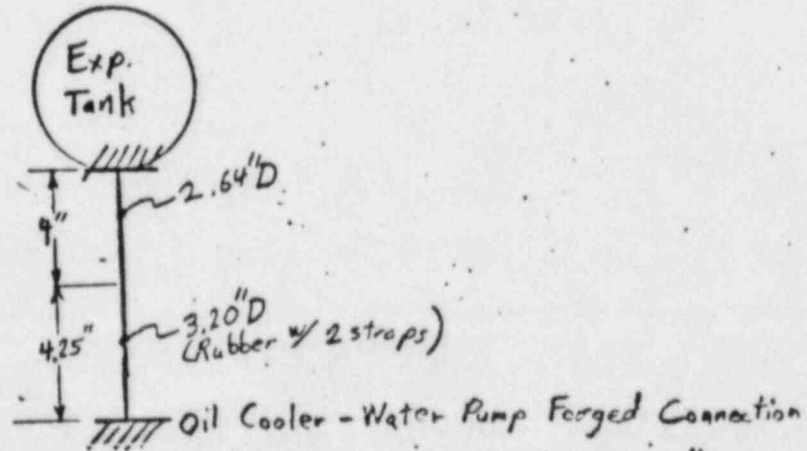 Exp.
Tank
2.64"D
4"
4.25"
3.20"D
(Rubber w/ 2 straps)
Oil Cooler - Water Pump Forged Connection